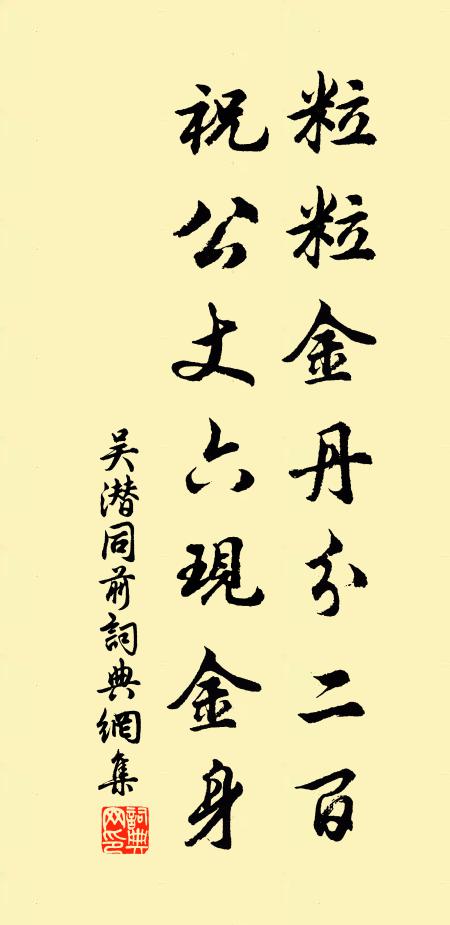 粒粒金丹分二百
祝公丈六現金身
吴潜同前詞典網集
詞典网印